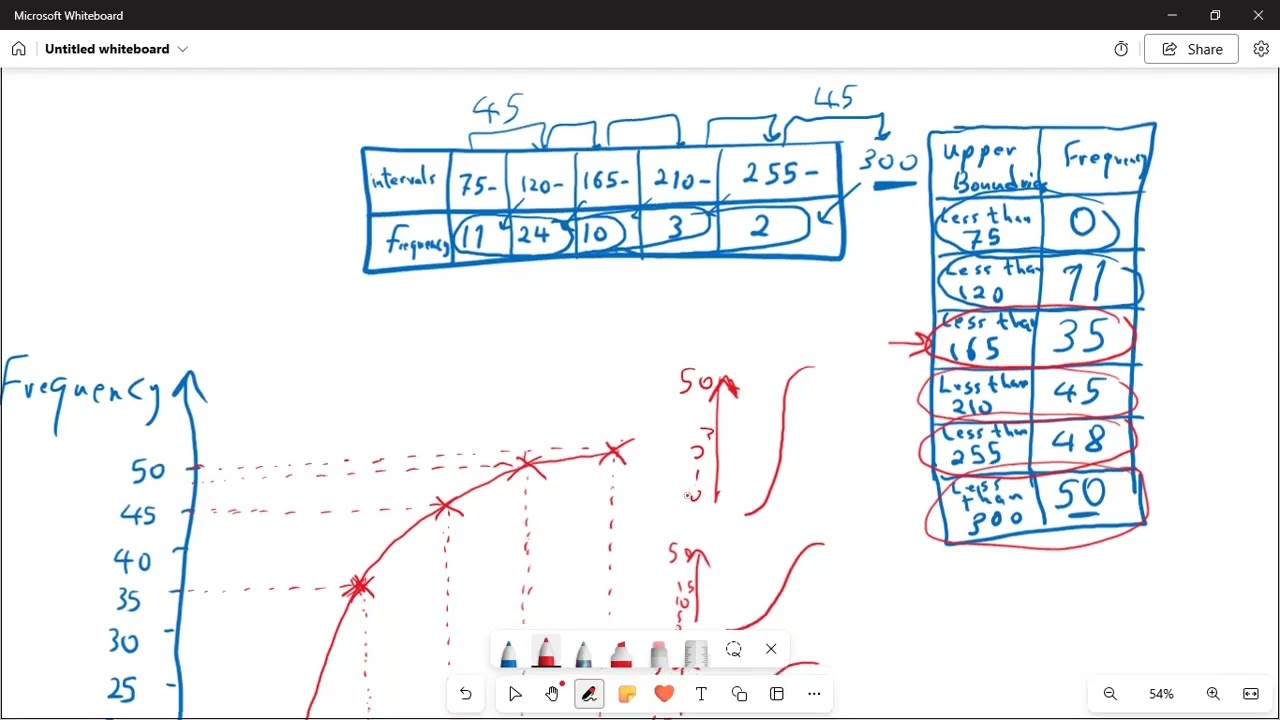 Microsoft Whiteboard
Untitled whiteboard
Share
45
45
intervals 75- 120- 165- 210- 255- 300
Frequency 11 24 10 3 2
Upper Boundries Frequency
Less than 75 0
Less than 120 11
Less than 165 35
Less than 210 45
Less than 255 48
Less than 300 50
Frequency
50
45
40
35
30
25
50
1
0
50
15
10
5
54%